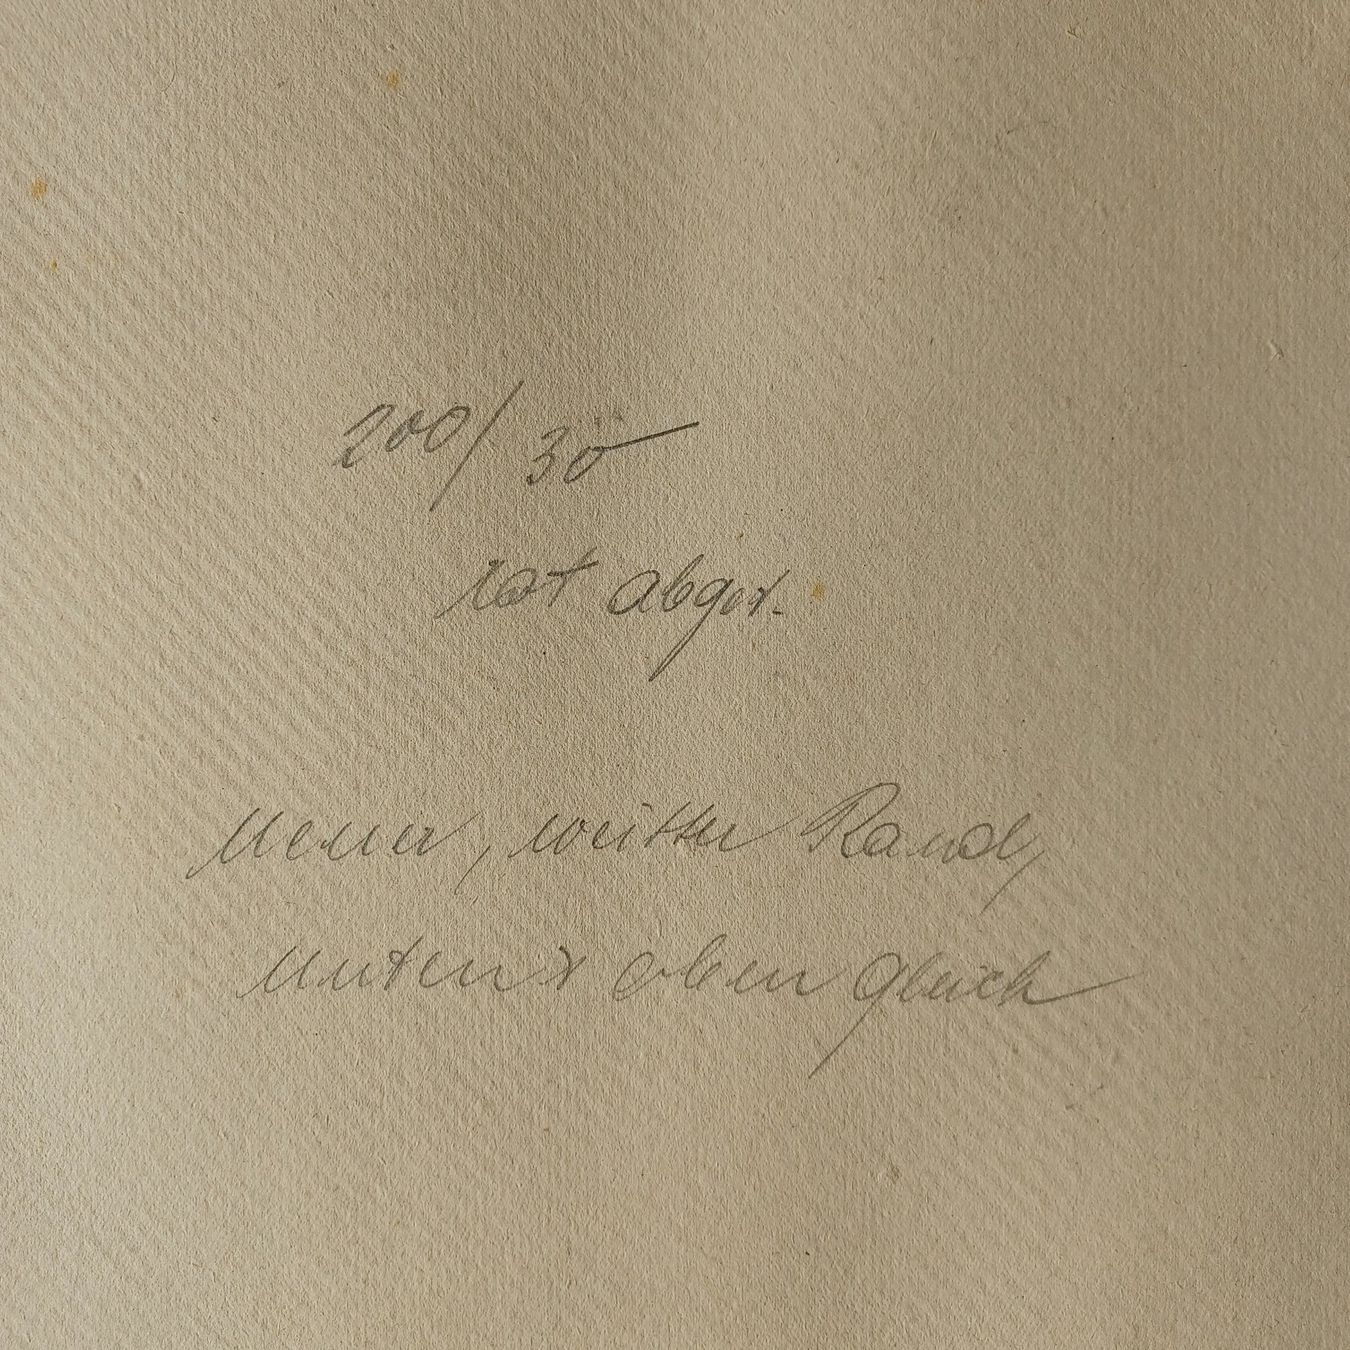 200/30
rot abget.
neuer, weißer Rand,
unten & oben gleich